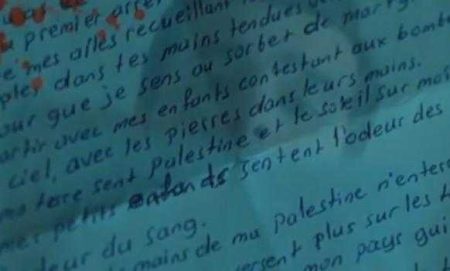 premier
e mes ailes recueillant
dans tes mains tendues
our que je sens au sorbet de
artir avec mes enfants contestant aux bombe
ciel, avec les pierres dans leurs mains.
ma terre sent Palestine et le soleil sur
mes petits enfants sentent l'odeur des
eur du sang.
mains de ma palestine n'enterr
ersent plus sur les t
mon pays qui